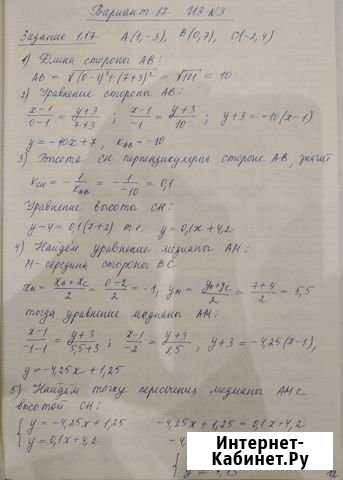 Вариант 17 ИЗ №3
Задание 1.17 A(1,-3), B(0,7), C(-2,4)
1) Длина стороны AB:
AB = √((0-1)²+(7+3)²) = √101 = 10
2) Уравнение стороны AB:
(x-1)/(0-1) = (y+3)/(7+3) ; (x-1)/(-1) = (y+3)/10 ; y+3 = -10(x-1)
y = -10x+7, k_AB = -10
3) Высота CH перпендикулярна стороне AB, значит
k_CH = -1/k_AB = -1/(-10) = 0,1
Уравнение высоты CH:
y-4 = 0,1(x+2) т.е. y = 0,1x+4,2
4) Найдём уравнение медианы AM:
M-середина стороны BC
x_M = (x_B+x_C)/2 = (0-2)/2 = -1, y_M = (y_B+y_C)/2 = (7+4)/2 = 5,5
тогда уравнение медианы AM:
(x-1)/(-1-1) = (y+3)/(5,5+3) ; (x-1)/(-2) = (y+3)/8,5 , y+3 = -4,25(x-1),
y = -4,25x+1,25
5) Найдём точку пересечения медианы AM с
высотой CH:
{ y = -4,25x+1,25 -4,25x+1,25 = 0,1x+4,2
{ y = 0,1x+4,2
Интернет-
Кабинет.Ру
12